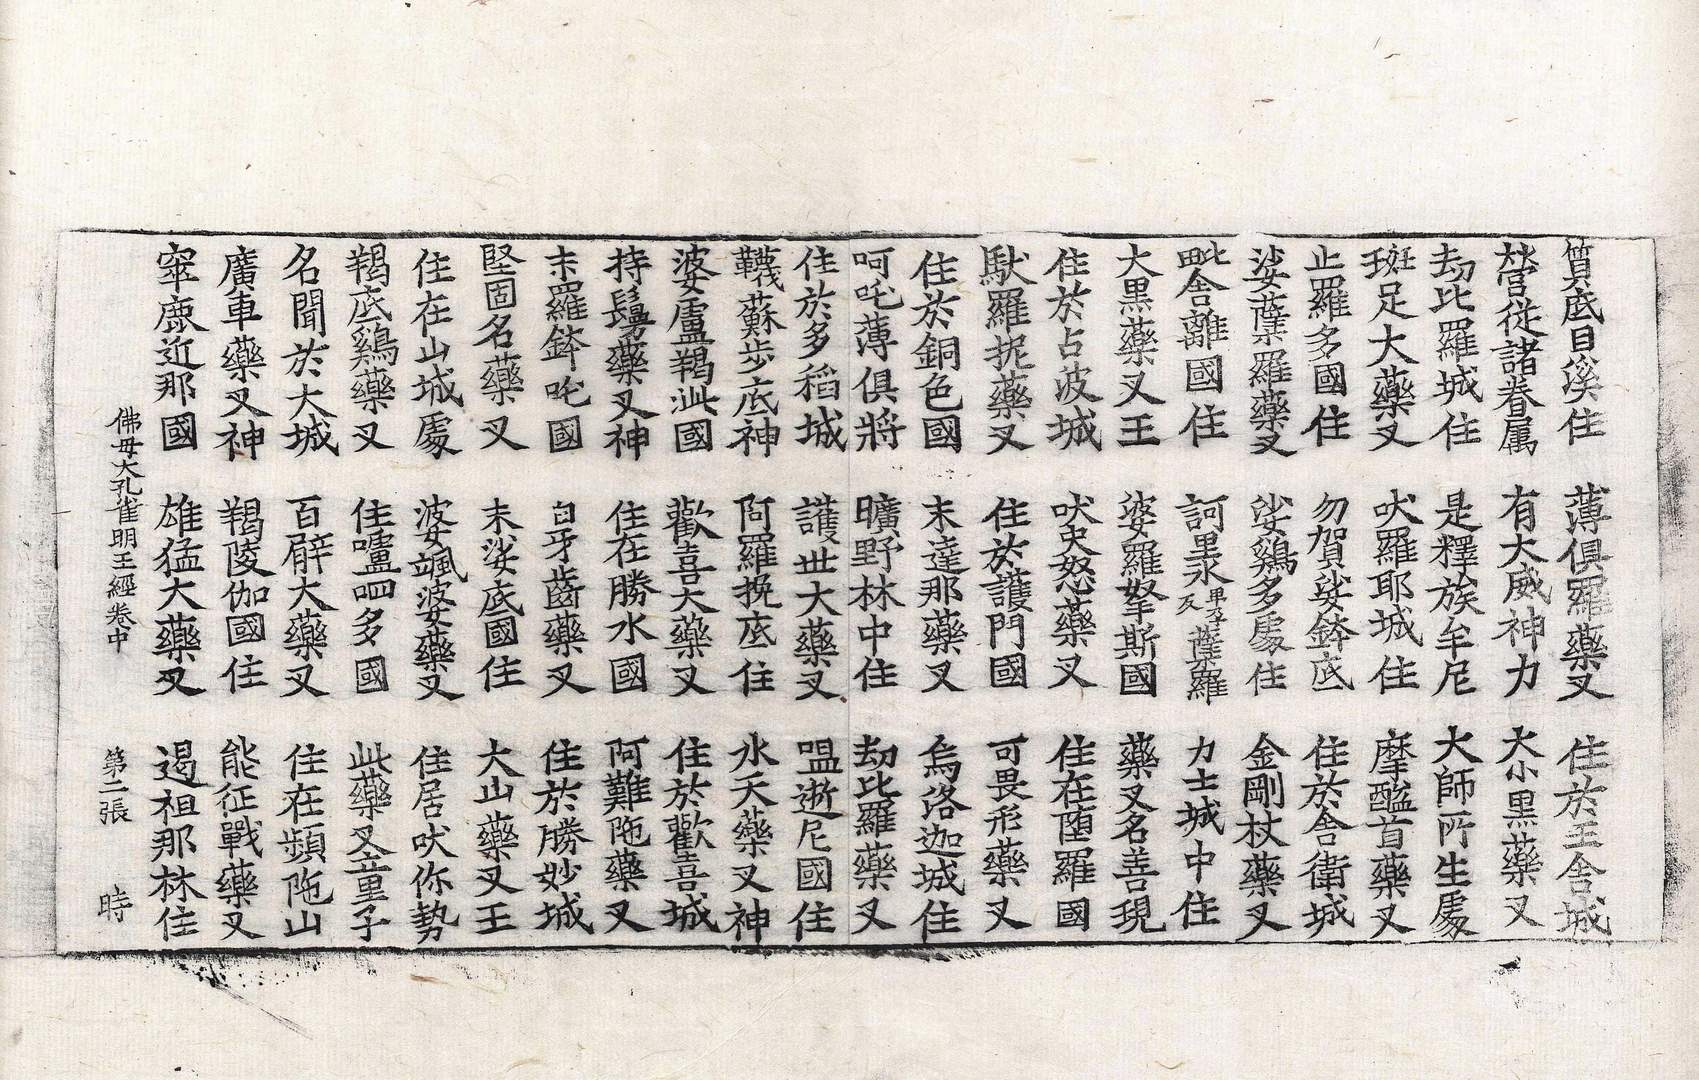 質底目溪住　薄俱羅藥叉　住於王舍城
營從諸眷属　有大威神力　大小黑藥叉
劫比羅城住　是釋族牟尼　大師所生處
斑足大藥叉　吠羅耶城住　摩醯首藥叉
止羅多國住　勿賀娑鉢底　住於舍衛城
娑薩羅藥叉　娑鷄多處住　金剛杖藥叉
毗舍離國住　訶里氷畢孕反薩羅　力士城中住
大黑藥叉王　婆羅拏斯國　藥叉名善現
住於占波城　吠史怒藥叉　住在墮羅國
馱羅抳藥叉　住於護門國　可畏形藥叉
住於銅色國　末達那藥叉　烏洛迦城住
呵吒薄俱將　曠野林中住　劫比羅藥叉
住於多稻城　護世大藥叉　嗢逝尼國住
韈蘇步底神　阿羅挽底住　水天藥叉神
婆盧羯泚國　歡喜大藥叉　住於歡喜城
持鬘藥叉神　住在勝水國　阿難陁藥叉
末羅鉢吒國　白牙齒藥叉　住於勝妙城
堅固名藥叉　末娑底國住　大山藥叉王
住在山城處　婆颯婆藥叉　住居吠你勢
羯底鷄藥叉　住嚧呬多國　此藥叉童子
名聞於大城　百臂大藥叉　住在頻陁山
廣車藥叉神　羯陵伽國住　能征戰藥叉
窣鹿近那國　雄猛大藥叉　遏祖那林住
佛母大孔雀明王經卷中　第二張　時